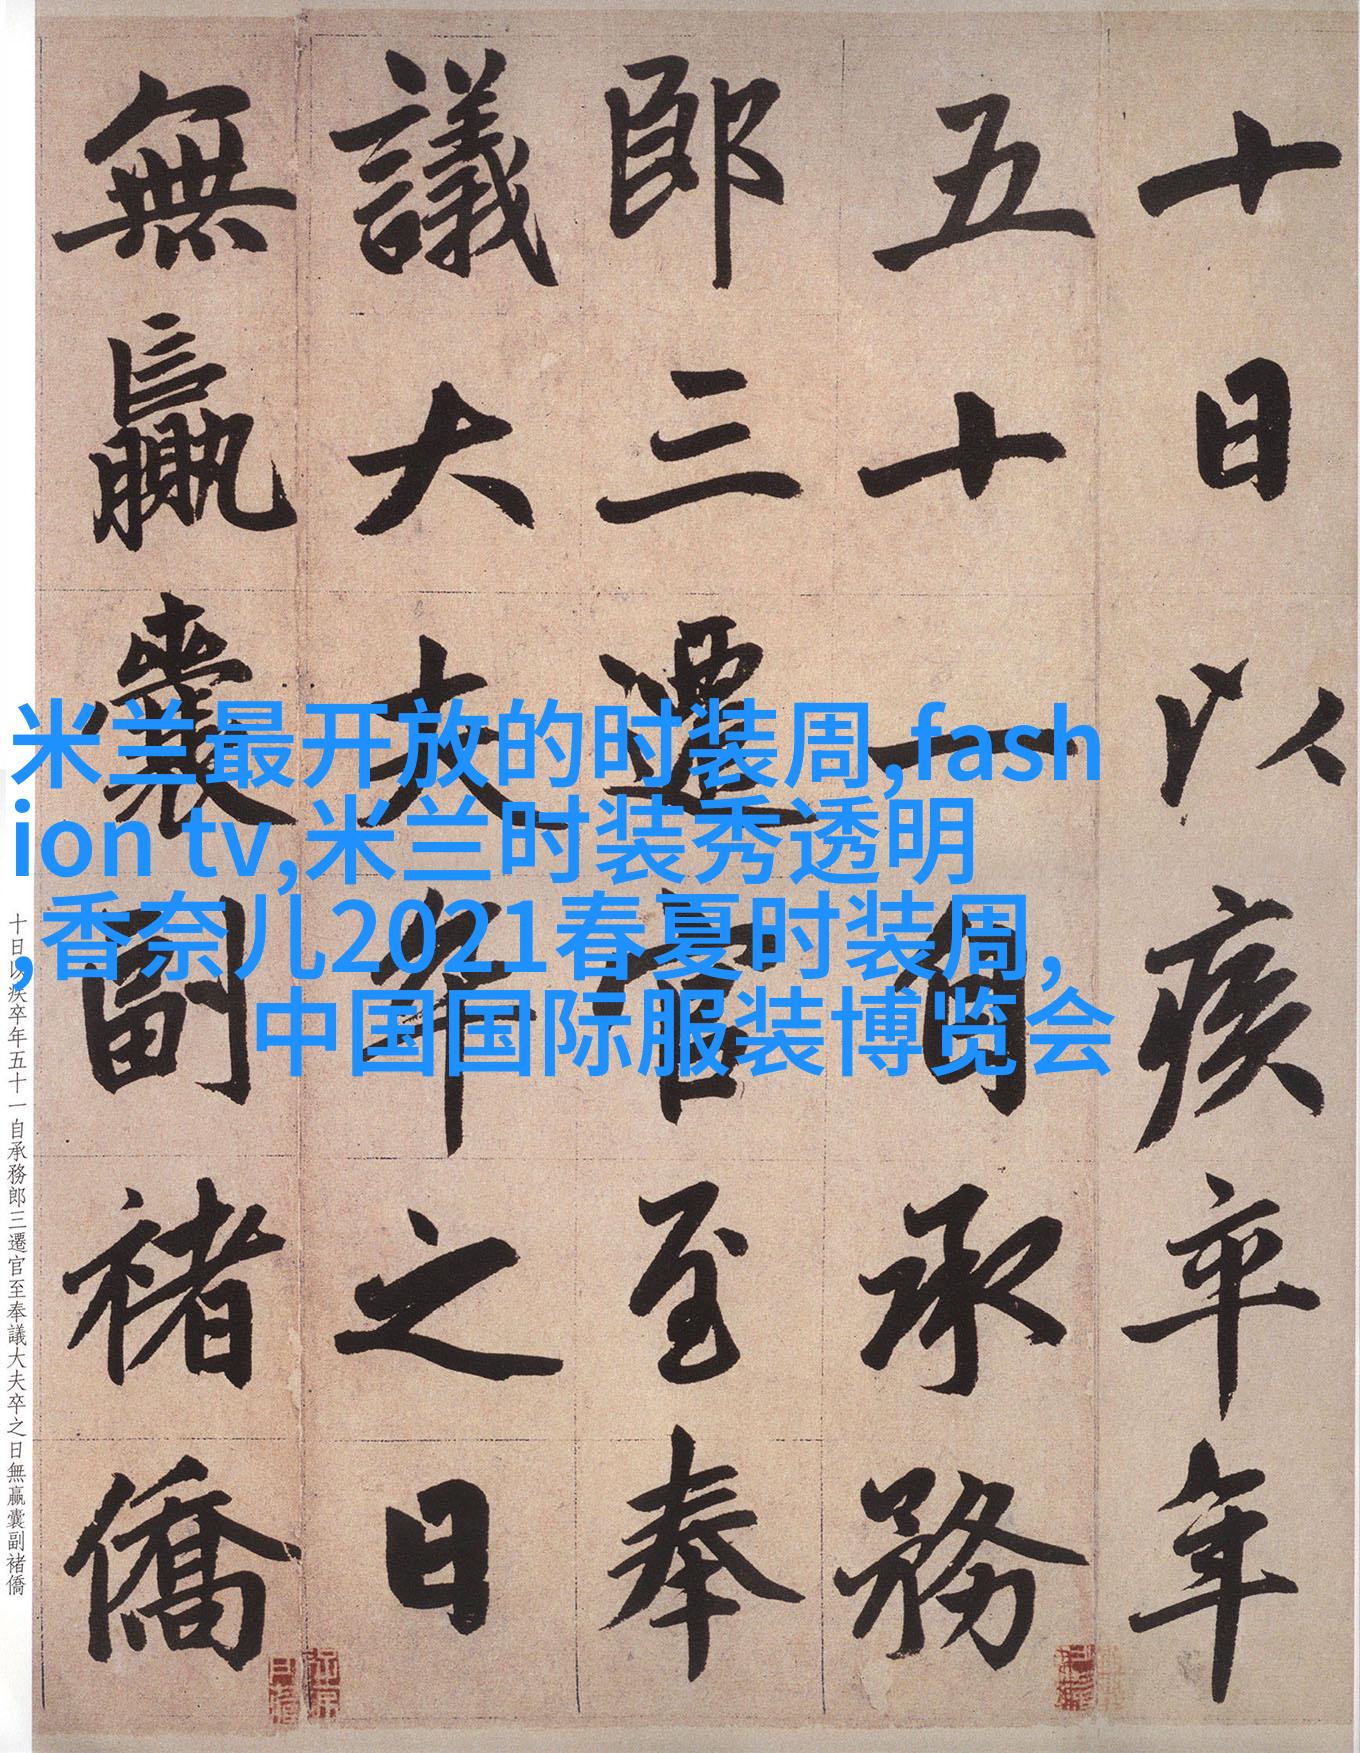 十日以疾卒年
五十一自承務
郎三遷官至奉
議大夫卒之日
無贏囊副褚僑
米兰最开放的时装周,fash
ion tv,米兰时装秀透明
,香奈儿2021春夏时装周,
中国国际服装博览会
十日以疾卒年五十一自承務郎三遷官至奉議大夫卒之日無贏囊副褚僑